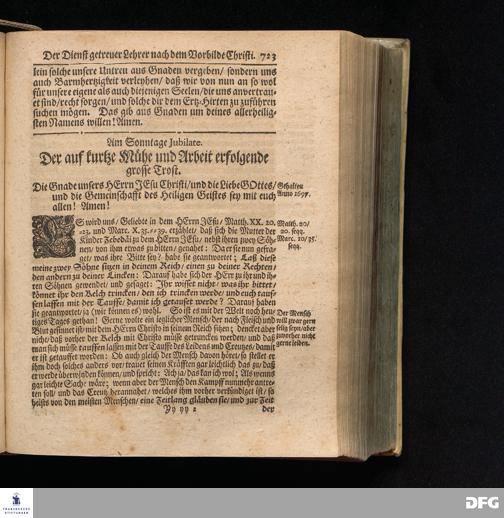 Der Dienst getreuer Lehrer nach dem Vorbilde Christi. 723
lein solche unsere Untreu aus Gnaden vergeben/ sondern uns
auch Barmhertzigkeit verleyhen/ daß wir von nun an so wol
für unsere eigene als auch diejenigen Seelen/ die uns anvertrau-
et sind/ recht sorgen/ und solche dir dem Ertz-Hirten zu zuführen
suchen mögen. Das gib aus Gnaden um deines allerheilig-
sten Namens willen! Amen.
Am Sonntage Jubilate.
Der auf kurtze Mühe und Arbeit erfolgende
grosse Trost.
Die Gnade unsers HErrn JEsu Christi/ und die Liebe GOttes/
und die Gemeinschafft des Heiligen Geistes sey mit euch
allen! Amen!
Gehalten
Anno 1697.
ES wird uns/ Geliebte in dem HErrn JEsu/ Matth. XX. 20.
-23. und Marc. X. 35.-39. erzählet/ daß sich die Mutter der
Kinder Zebedäi zu dem HErrn JEsu/ nebst ihren zwey Söh-
nen/ von ihm etwas zu bitten/ genahet: Da er sie nun gefra-
get/ was ihre Bitte sey? habe sie geantwortet: Laß diese
meine zwey Söhne sitzen in deinem Reich/ einen zu deiner Rechten/
den andern zu deiner Lincken: Darauf habe sich der HErr zu ihr und ih-
ren Söhnen gewendet/ und gesaget: Ihr wisset nicht/ was ihr bittet/
könnet ihr den Kelch trincken/ den ich trincken werde/ und euch tauf-
fen lassen mit der Tauffe/ damit ich getauffet werde? Darauf haben
sie geantwortet/ ja (wir können es) wohl. So ist es mit der Welt noch heu-
tiges Tages gethan! Gerne wolte ein jeglicher Mensch/ der nach Fleisch und
Blut gesinnet ist/ mit dem HErrn Christo in seinem Reich sitzen; dencket aber
nicht/ daß vorher der Kelch mit Christo müsse getruncken werden/ und daß
man sich müsse tauffen lassen mit der Tauffe des Leidens und Creutzes/ damit
er ist getauffet worden: Ob auch gleich der Mensch davon höret/ so stellet er
ihm doch solches anders vor/ trauet seinen Kräfften gar leichtlich das zu/ daß
er werde überwinden können/ und spricht: Ach ja/ das kan ich wol; Als wenns
gar leichte Sach wäre; wenn aber der Mensch den Kampff nunmehr antre-
ten soll/ und das Creutz herannahet/ welches ihm vorher verkündiget ist/ so
heists von den meisten Menschen/ eine Zeitlang gläuben sie/ und zur Zeit
Matth. 20/
20. seqq.
Marc. 10/35.
seqq.
Der Mensch
will zwar gern
selig seyn/ aber
zuvorher nicht
gerne leiden.
Yy yy 2
der
FRANCKESCHE
STIFTUNGEN
DFG